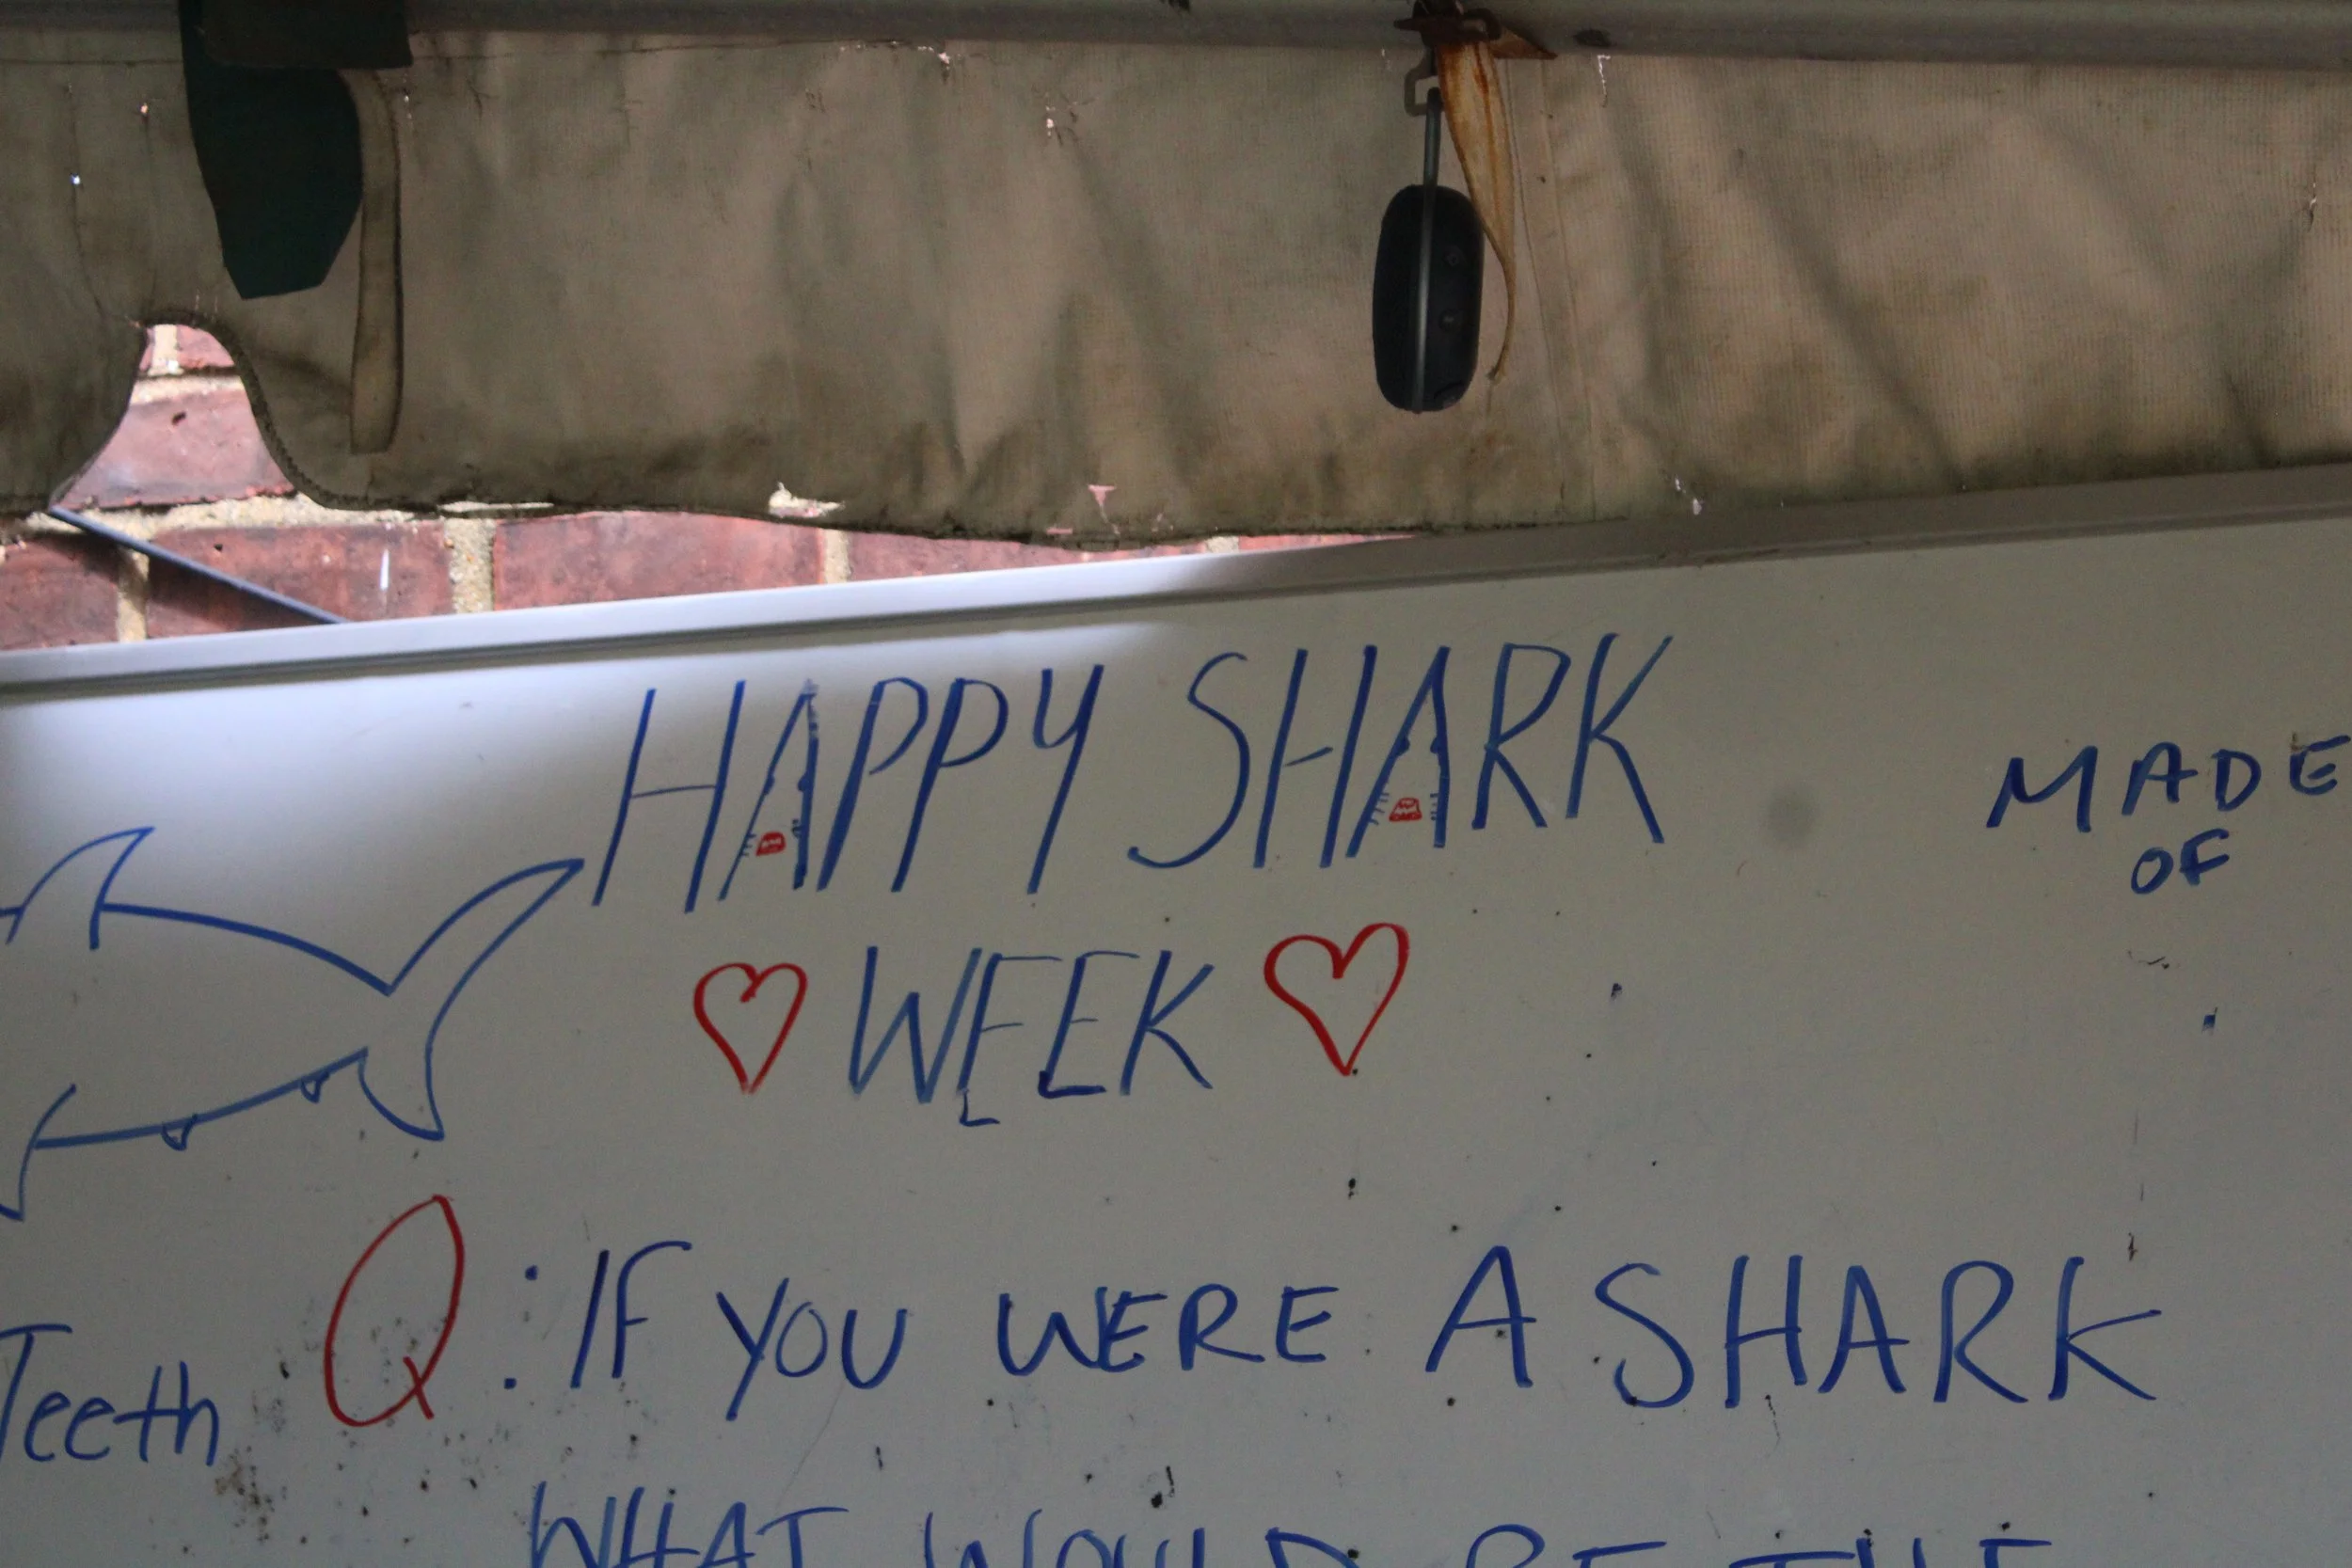 HAPPY SHARK
WEEK
MADE
OF
Teeth
Q: IF YOU WERE A SHARK
WHAT WOULD BE THE